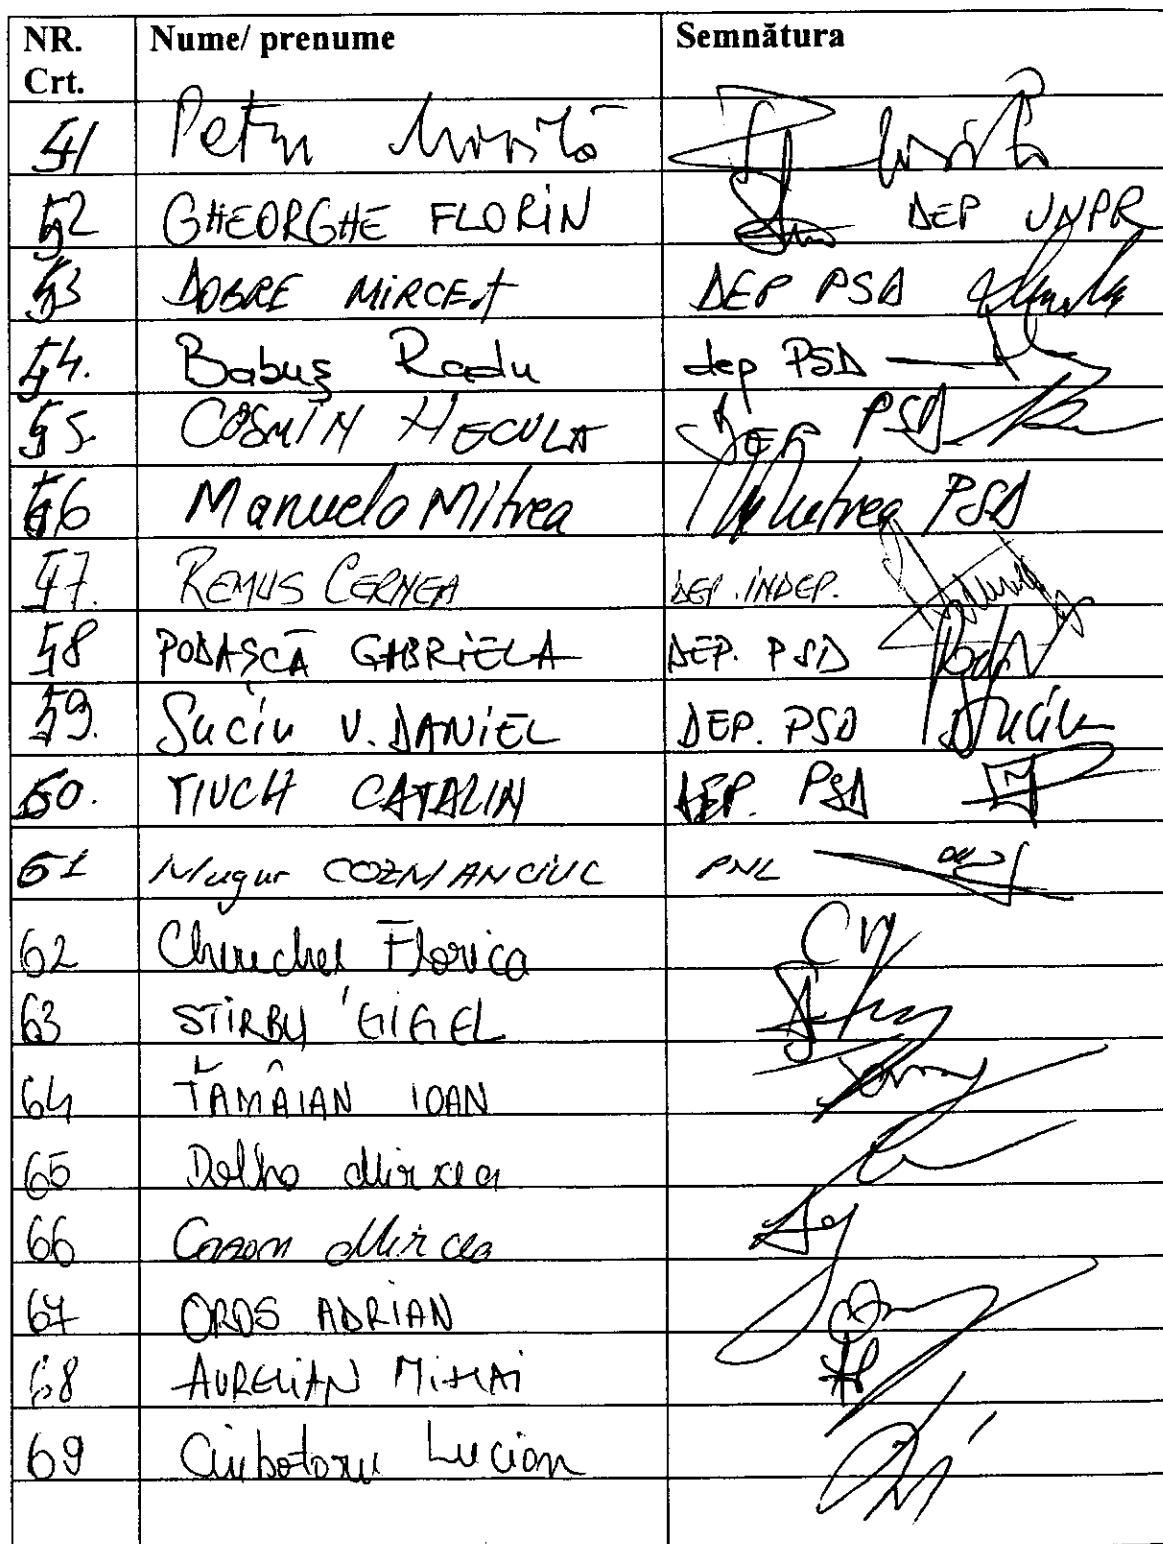 NR. Crt. Nume/ prenume Semnătura
51 Petru
52 GHEORGHE FLORIN DEP UNPR
53 DOBRE MIRCEA DEP PSD
54. Babuș Radu dep PSD
55. COSMIN NECULA DEP PSD
56 Manuela Mitrea Mitrea PSD
57. REMUS CERNEA DEP. INDEP.
58 PODAȘCĂ GABRIELA DEP. PSD
59. Suciu V. DANIEL DEP. PSD Suciu
60. TIUCH CATALIN DEP. PSD
61 Mugur COZMANCIUC PNL
62 Chereches Florica
63 STIRBU GIGEL
64 TĂMÂIAN IOAN
65 Dolha Mircea
66 Cazan Mircea
67 OROS ADRIAN
68 AURELIAN MIHAI
69 Ciubotaru Lucian